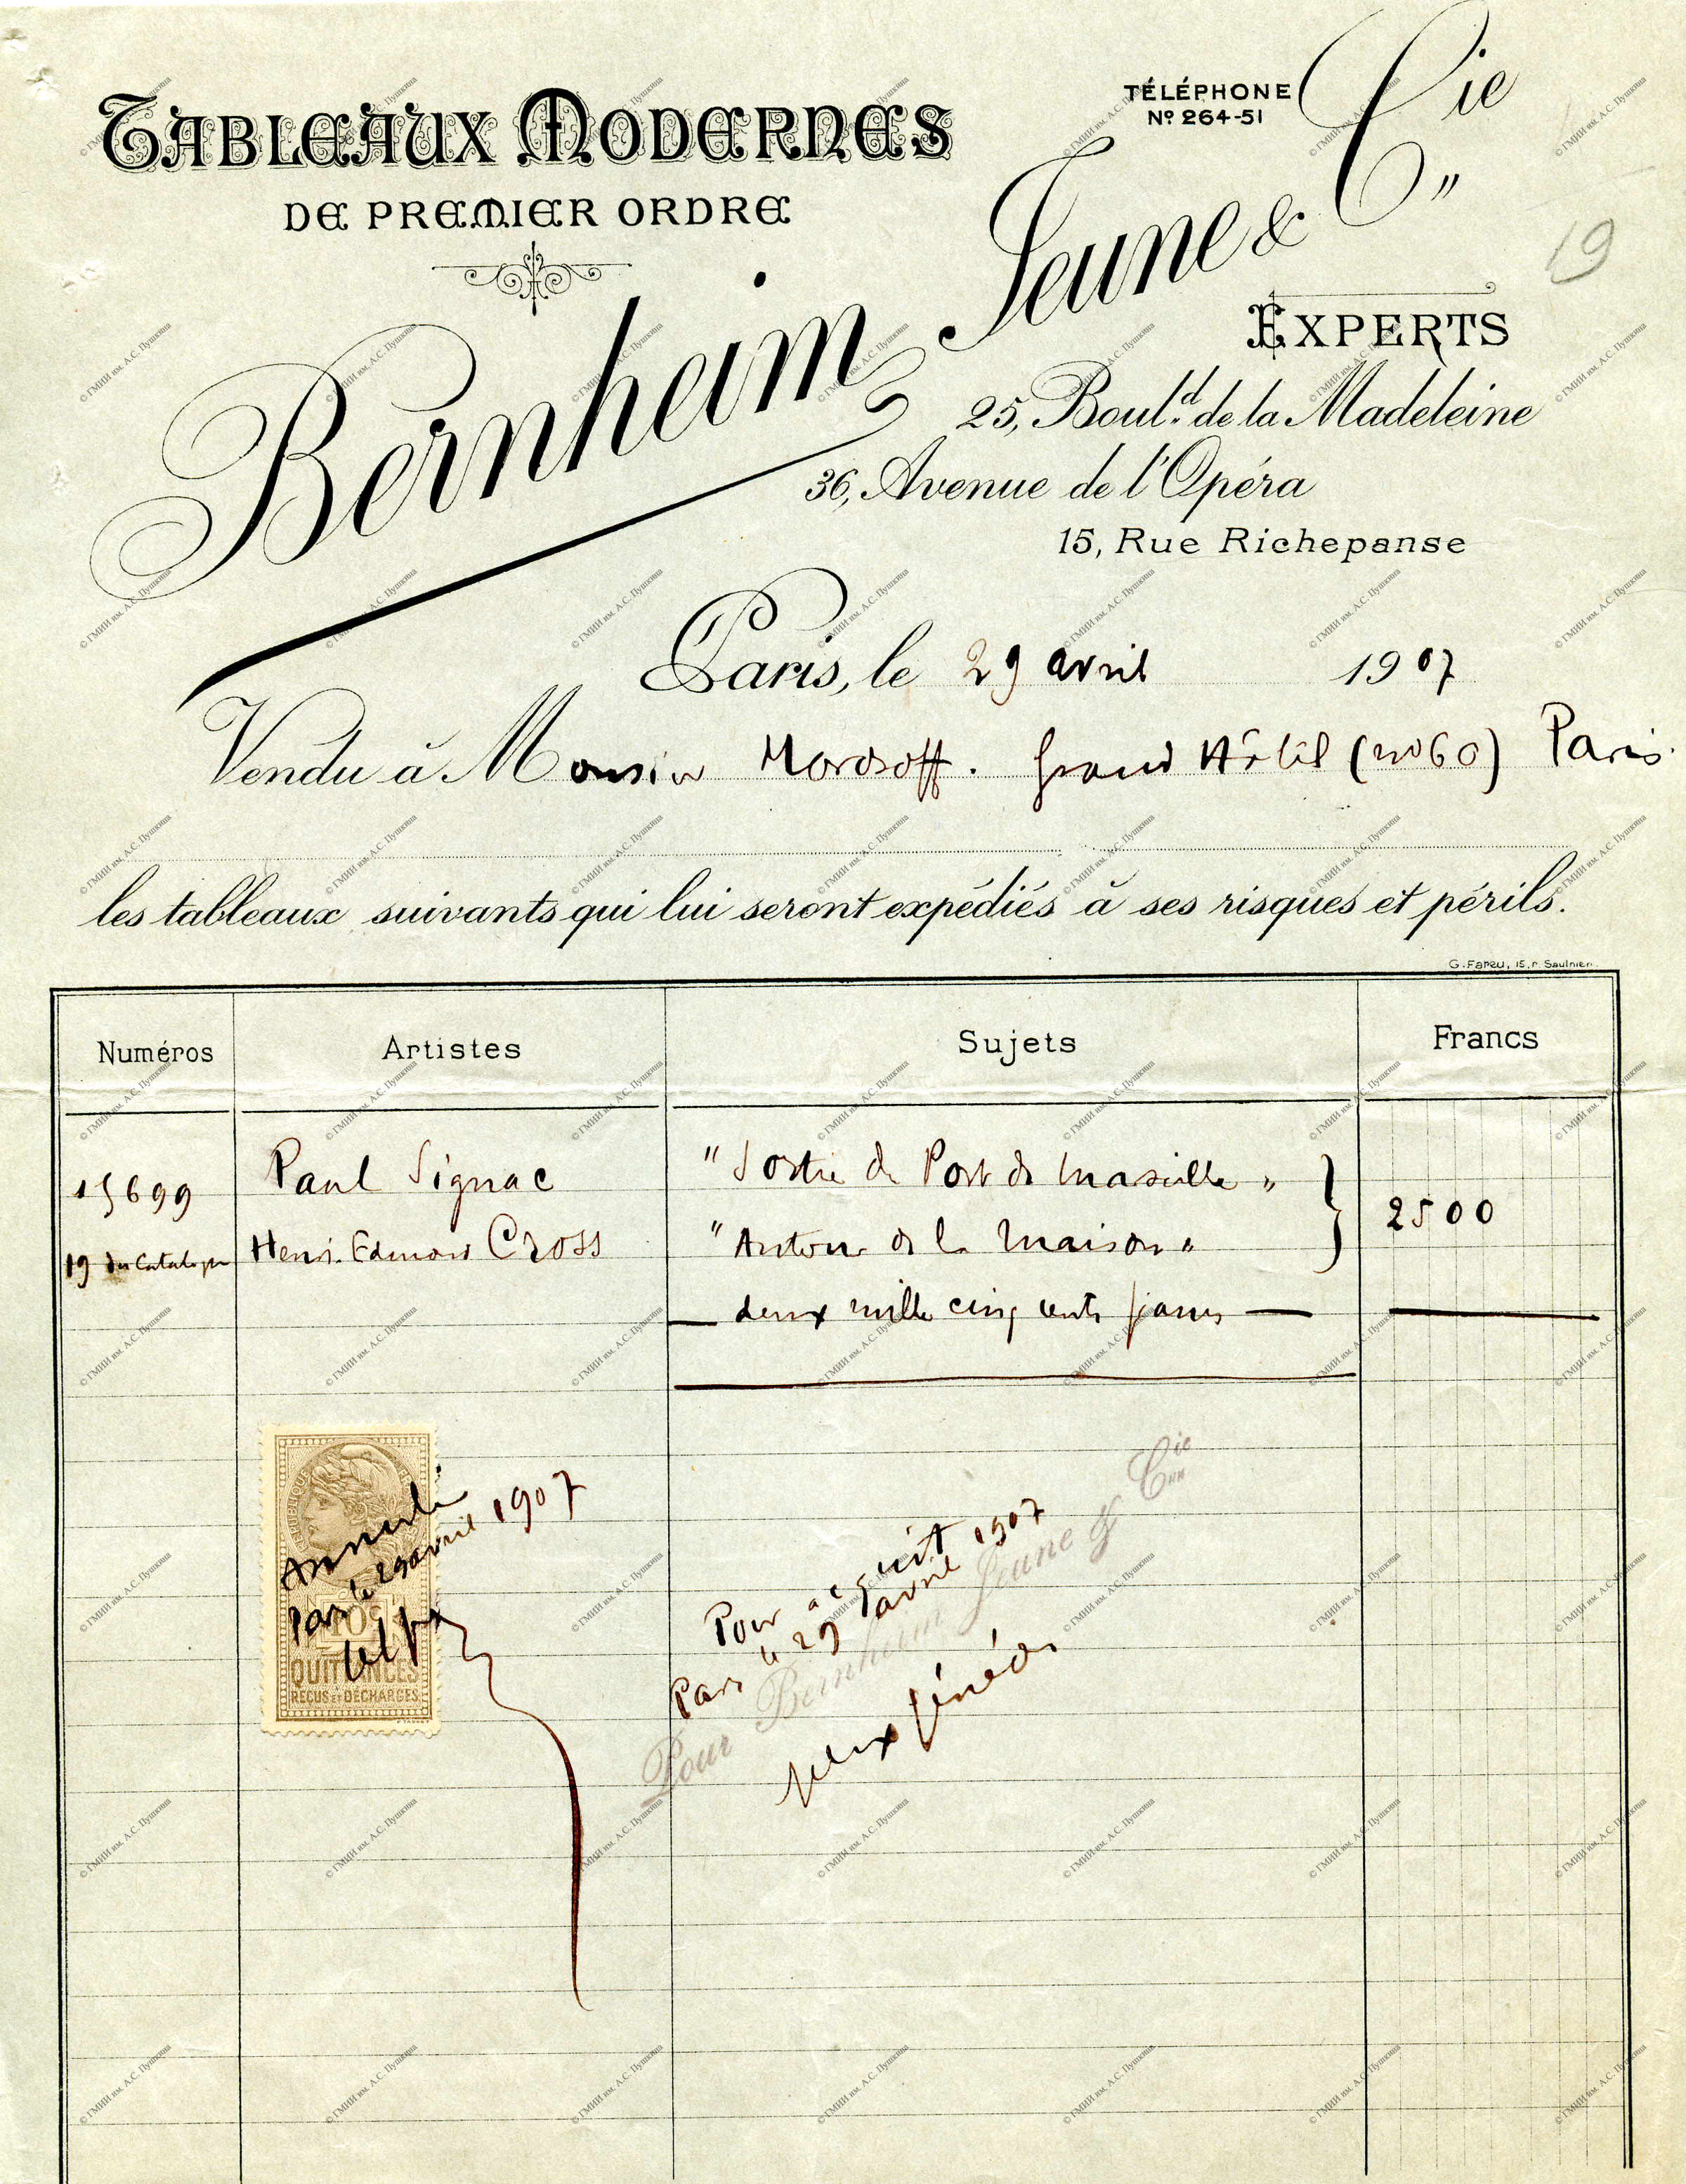 TABLEAUX MODERNES
DE PREMIER ORDRE
TÉLÉPHONE
Nº 264-51
Bernheim Jeune & Cie
19
EXPERTS
25, Bould. de la Madeleine
36, Avenue de l'Opéra
15, Rue Richepanse
Paris, le 29 avril 1907
Vendu à Monsieur Morosoff. Grand Hôtel (nº 60) Paris.
les tableaux suivants qui lui seront expédiés à ses risques et périls.
G. Fareu, 15, r. Saulnier.
Numéros Artistes Sujets Francs
15699 Paul Signac "Sortie du Port de Marseille" 2500
19 du Catalogue Henri-Edmond Cross "Autour de la Maison"
deux mille cinq cents francs
RÉPUBLIQUE
Annulé
Paris le 29 avril 1907
10c
QUITTANCES
REÇUS ET DÉCHARGES
Pour acquit
Paris le 29 avril 1907
Pour Bernheim Jeune & Cie
félix fénéon
© ГМИИ им. А.С. Пушкина